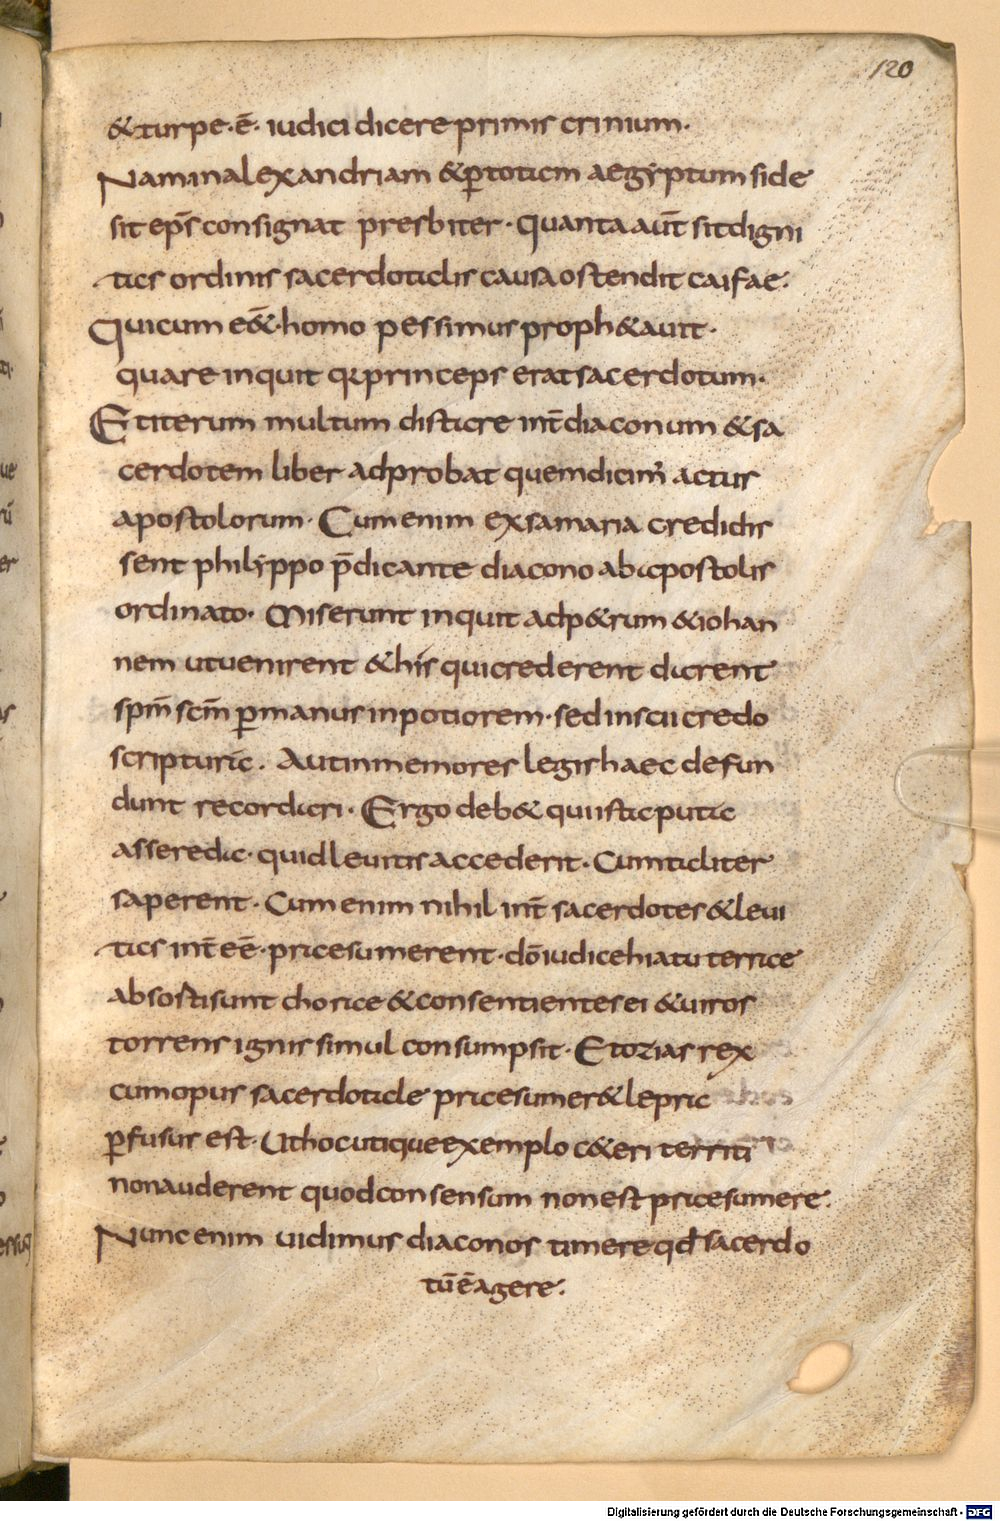 120
& turpe·ē· iudici dicere primis crinium·
Nam in alexandriam & ꝑ totam aegyptum si de
sit ep̄s consignat presbiter· Quanta aūt sit digni
tas ordinis sacerdotalis causa ostendit caifae·
Qui cum e&̄·homo pessimus proph&auit·
quare inquit qr princeps erat sacerdotum·
Et iterum multum distare int̄ diaconum & sa
cerdotem liber adprobat quem dicim᾽ actus
apostolorum· Cum enim ex samaria credidis
sent philyppo p̄dicante diacono ab apostolis
ordinato· Miserunt inquit ad p&rum & iohan
nem ut uenirent & his qui crederent darent
sp̄m sc̄m ꝑ manus inpotiorem· sed in scu credo
scripturae. Aut inmemores legis haec defun
dunt recordari· Ergo deb& qui ista putat
asseredae· quid leuitis accederit· Cum taliter
saperent· Cum enim nihil int̄ sacerdotes & leui
tas int̄eē· praesumerent· dō iudice hiatu terrae
absosti sunt chorae & consentientes ei & uiros
torrens ignis simul consumpsit· Et ozias rex
cum opus sacerdotale praesumer& lepra
ꝑfusus est· Ut hoc utique exemplo c&eri territi
non auderent quod consensum non est praesumere·
Nunc enim uidimus diaconos timere qd̄ sacerdo
tū ē agere·
Digitalisierung gefördert durch die Deutsche Forschungsgemeinschaft - DFG